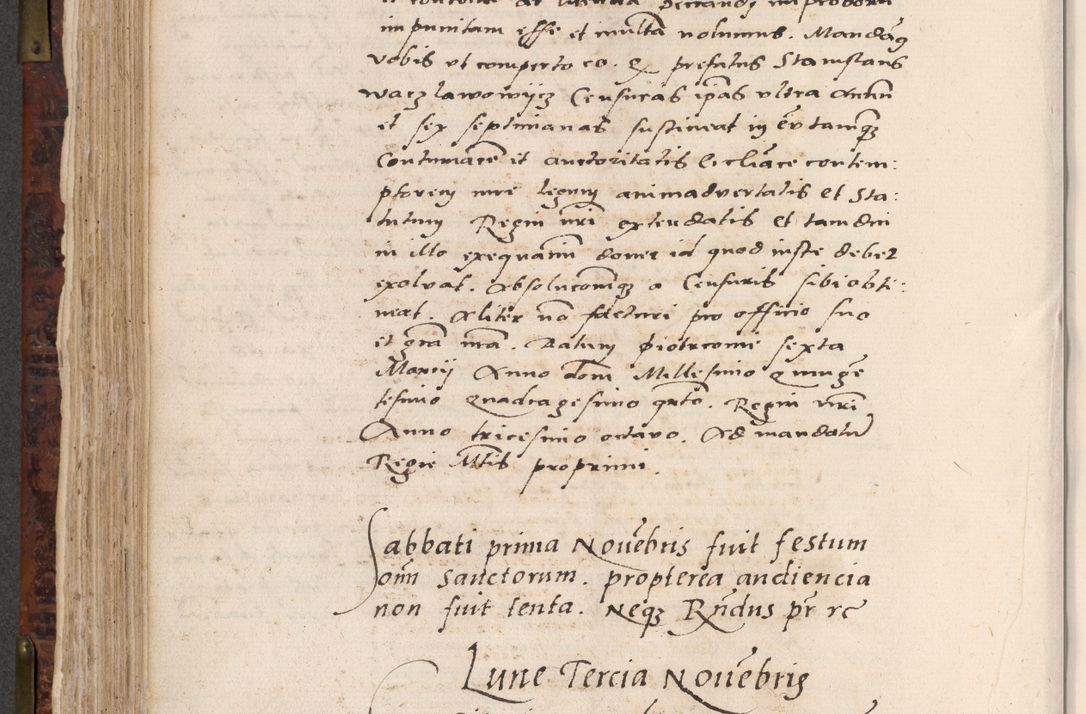 impunitam esse et multa nolumus. Mandaq
vobis ut comperto eo. Q prefatus Stanislaus
waczlawowijcz Censuras ipas ultra Annu
et sex septimanas sustineat in eu tamq
Contumace et auctoritatis Eccliace contem:
ptorem iure legum animadvertatis et Sta:
tutum Regni nri extendatis et tamdiu
in illo exequamini donec id quod iuste debet
exolvat. Absoluconemq a Censuris sibi obti:
neat. Aliter no facturi pro officio suo
et gra nra. Datum Piotrcovie sexta
Marcij Anno dom Millesimo Quinge
tesimo Quadragesimo qrto. Regni nri
Anno tricesimo octavo. Ad mandatu
Regie Mtis proprium.
Sabbati prima Noũebris fuit festum
oim sanctorum. propterea audiencia
non fuit tenta. Neq Rndus pr rc
Lune Tercia Noũebris